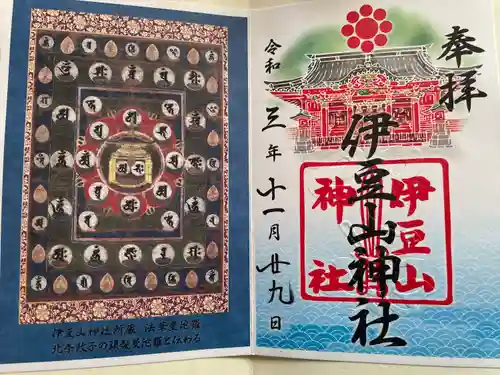 奉拝
伊豆山神社
伊豆山
神社
令和三年十一月廿九日
伊豆山神社所蔵 法華曼陀羅
北条政子の頭髪曼陀羅と伝わる